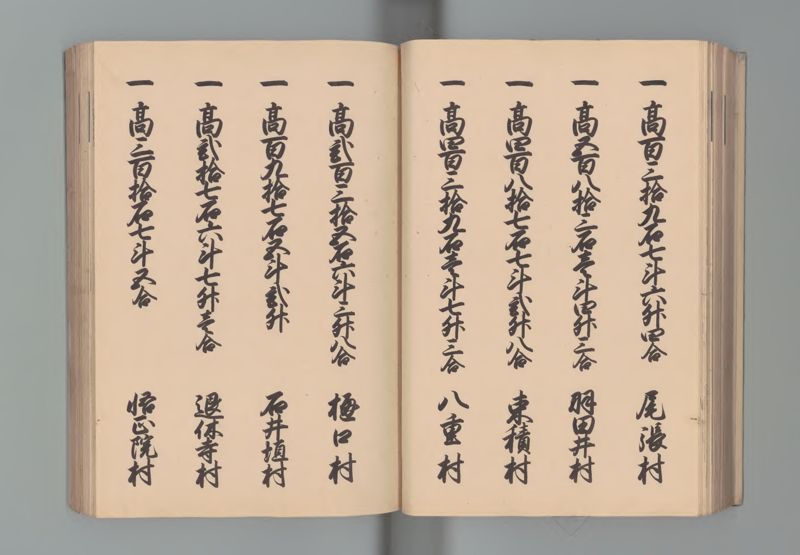 一 高百三拾九石七斗六升四合 尾張村
一 高五百八拾三石壱斗四升三合 羽田井村
一 高四百八拾七石七斗弐升八合 東積村
一 高四百三拾九石壱斗七升三合 八重村
一 高弐百三拾五石六斗三升八合 樋口村
一 高百九拾七石五斗弐升 石井垣村
一 高弐拾七石六斗七升壱合 退休寺村
一 高三百拾石七斗五合 悟正院村